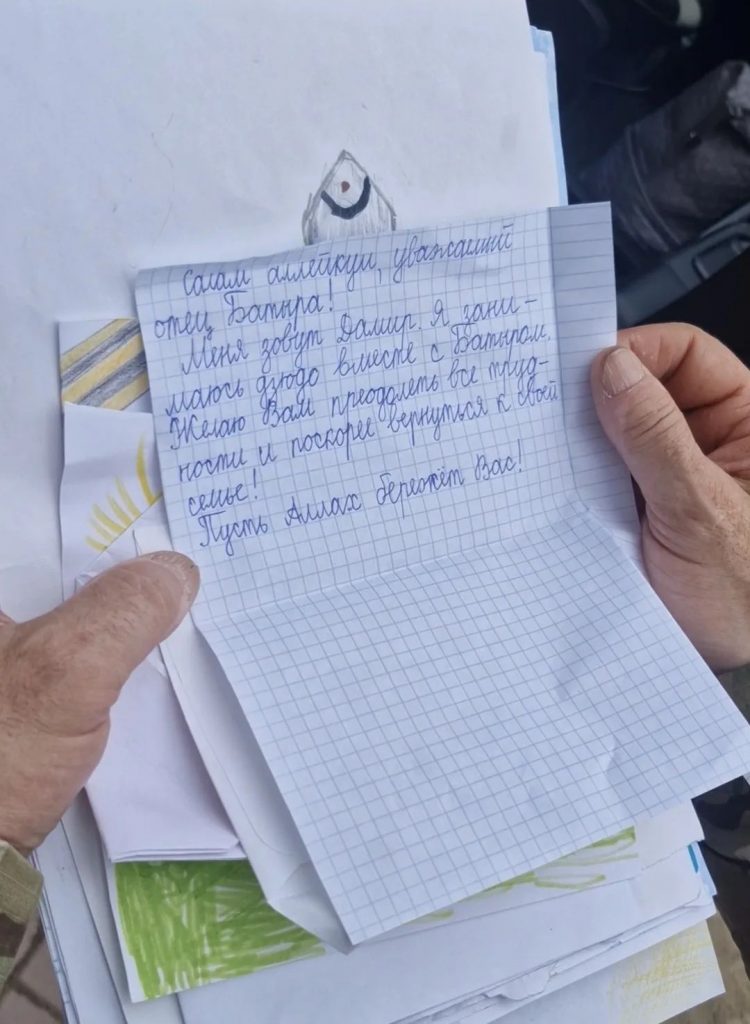 Салам аллейкум, уважаемый
отец Батыра!
Меня зовут Дамир. Я зани-
маюсь дзюдо вместе с Батыром.
Желаю Вам преодолеть все труд-
ности и поскорее вернуться к своей
семье!
Пусть Аллах бережёт Вас!